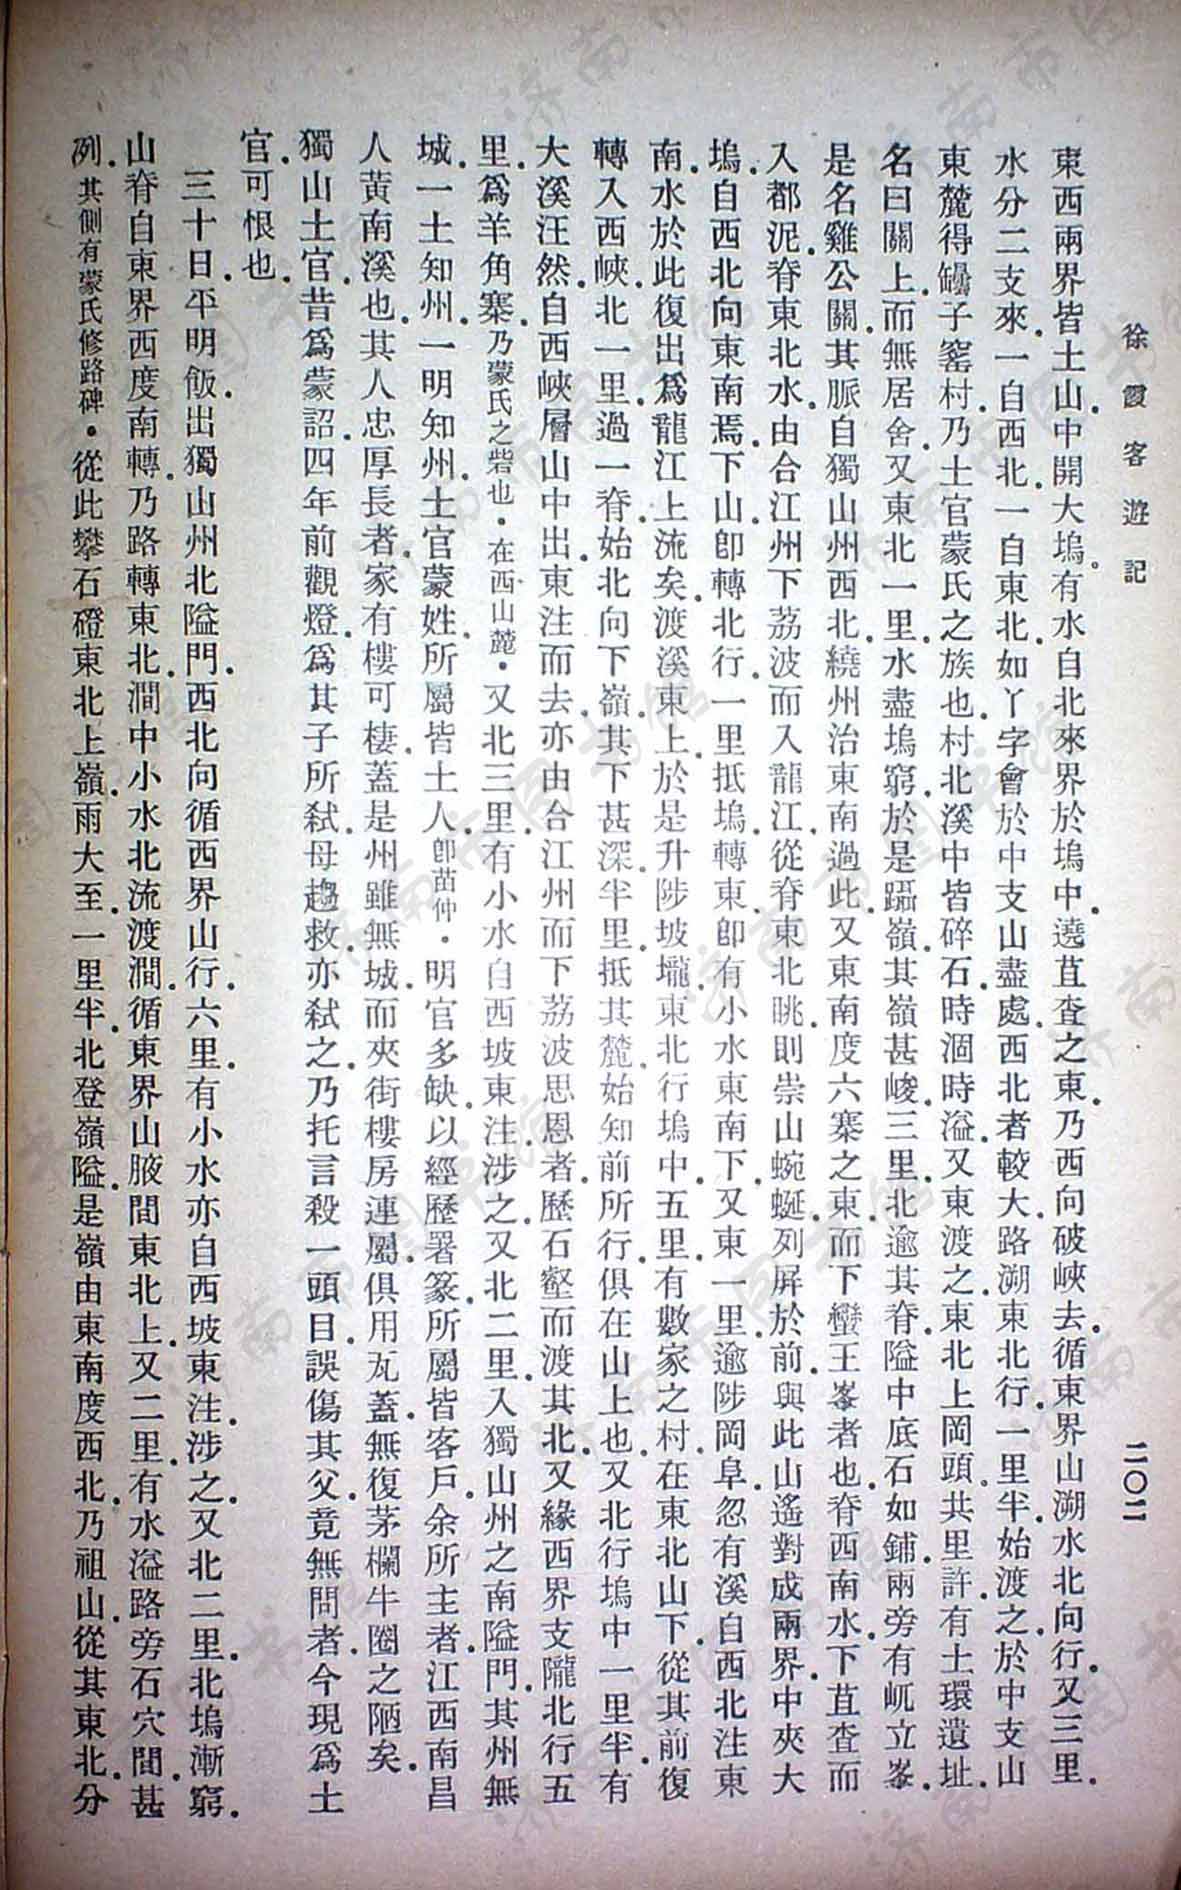 徐霞客遊記
二〇二
東西兩界皆土山.中開大塢。有水自北來界於塢中.遶苴査之東.乃西向破峽去.循東界山溯水北向行.又三里.
水分二支來.一自西北.一自東北.如丫字會於中支山盡處.西北者較大.路溯東北行.一里半.始渡之.於中支山
東麓得罎子窰村.乃土官蒙氏之族也.村北溪中皆碎石.時涸時溢.又東渡之.東北上岡頭.共里許.有土環遺址.
名曰關上.而無居舍.又東北一里.水盡塢窮.於是躡嶺.其嶺甚峻.三里.北逾其脊.隘中底石如鋪.兩旁有屼立峯.
是名雞公關.其脈自獨山州西北.繞州治東南過此.又東南度六寨之東.而下蠻王峯者也.脊西南水.下苴査而
入都泥.脊東北水.由合江州下荔波而入龍江.從脊東北眺.則崇山蜿蜒.列屏於前.與此山遙對成兩界.中夾大
塢.自西北向東南焉.下山.卽轉北行.一里抵塢.轉東.卽有小水東南下.又東一里.逾陟岡阜.忽有溪自西北注東
南.水於此復出爲龍江上流矣.渡溪東上.於是升陟坡壠.東北行塢中.五里.有數家之村.在東北山下.從其前復
轉入西峽.北一里.過一脊.始北向下嶺.其下甚深.半里.抵其麓.始知前所行俱在山上也.又北行塢中一里半.有
大溪汪然.自西峽層山中出.東注而去.亦由合江州而下荔波思恩者.歷石壑而渡其北.又緣西界支隴北行五
里.爲羊角寨.乃蒙氏之砦也.在西山麓.又北三里.有小水自西坡東注.涉之.又北二里.入獨山州之南隘門.其州無
城.一土知州.一明知州.土官蒙姓.所屬皆土人.卽苗仲.明官多缺.以經歷署篆.所屬皆客戶.余所主者.江西南昌
人黃南溪也.其人忠厚長者.家有樓可棲.蓋是州雖無城.而夾街樓房連屬.俱用瓦蓋.無復茅欄牛圈之陋矣.
獨山土官.昔爲蒙詔.四年前觀燈.爲其子所弒.母趨救.亦弒之.乃托言殺一頭目.誤傷其父.竟無問者.今現爲土
官.可恨也.
三十日.平明飯.出獨山州北隘門.西北向循西界山行.六里.有小水亦自西坡東注.涉之.又北二里.北塢漸窮.
山脊自東界西度南轉.乃路轉東北.澗中小水北流.渡澗.循東界山腋間東北上.又二里.有水溢路旁石穴間.甚
冽.其側有蒙氏修路碑.從此攀石磴東北上嶺.雨大至.一里半.北登嶺隘.是嶺由東南度西北.乃祖山.從其東北.分